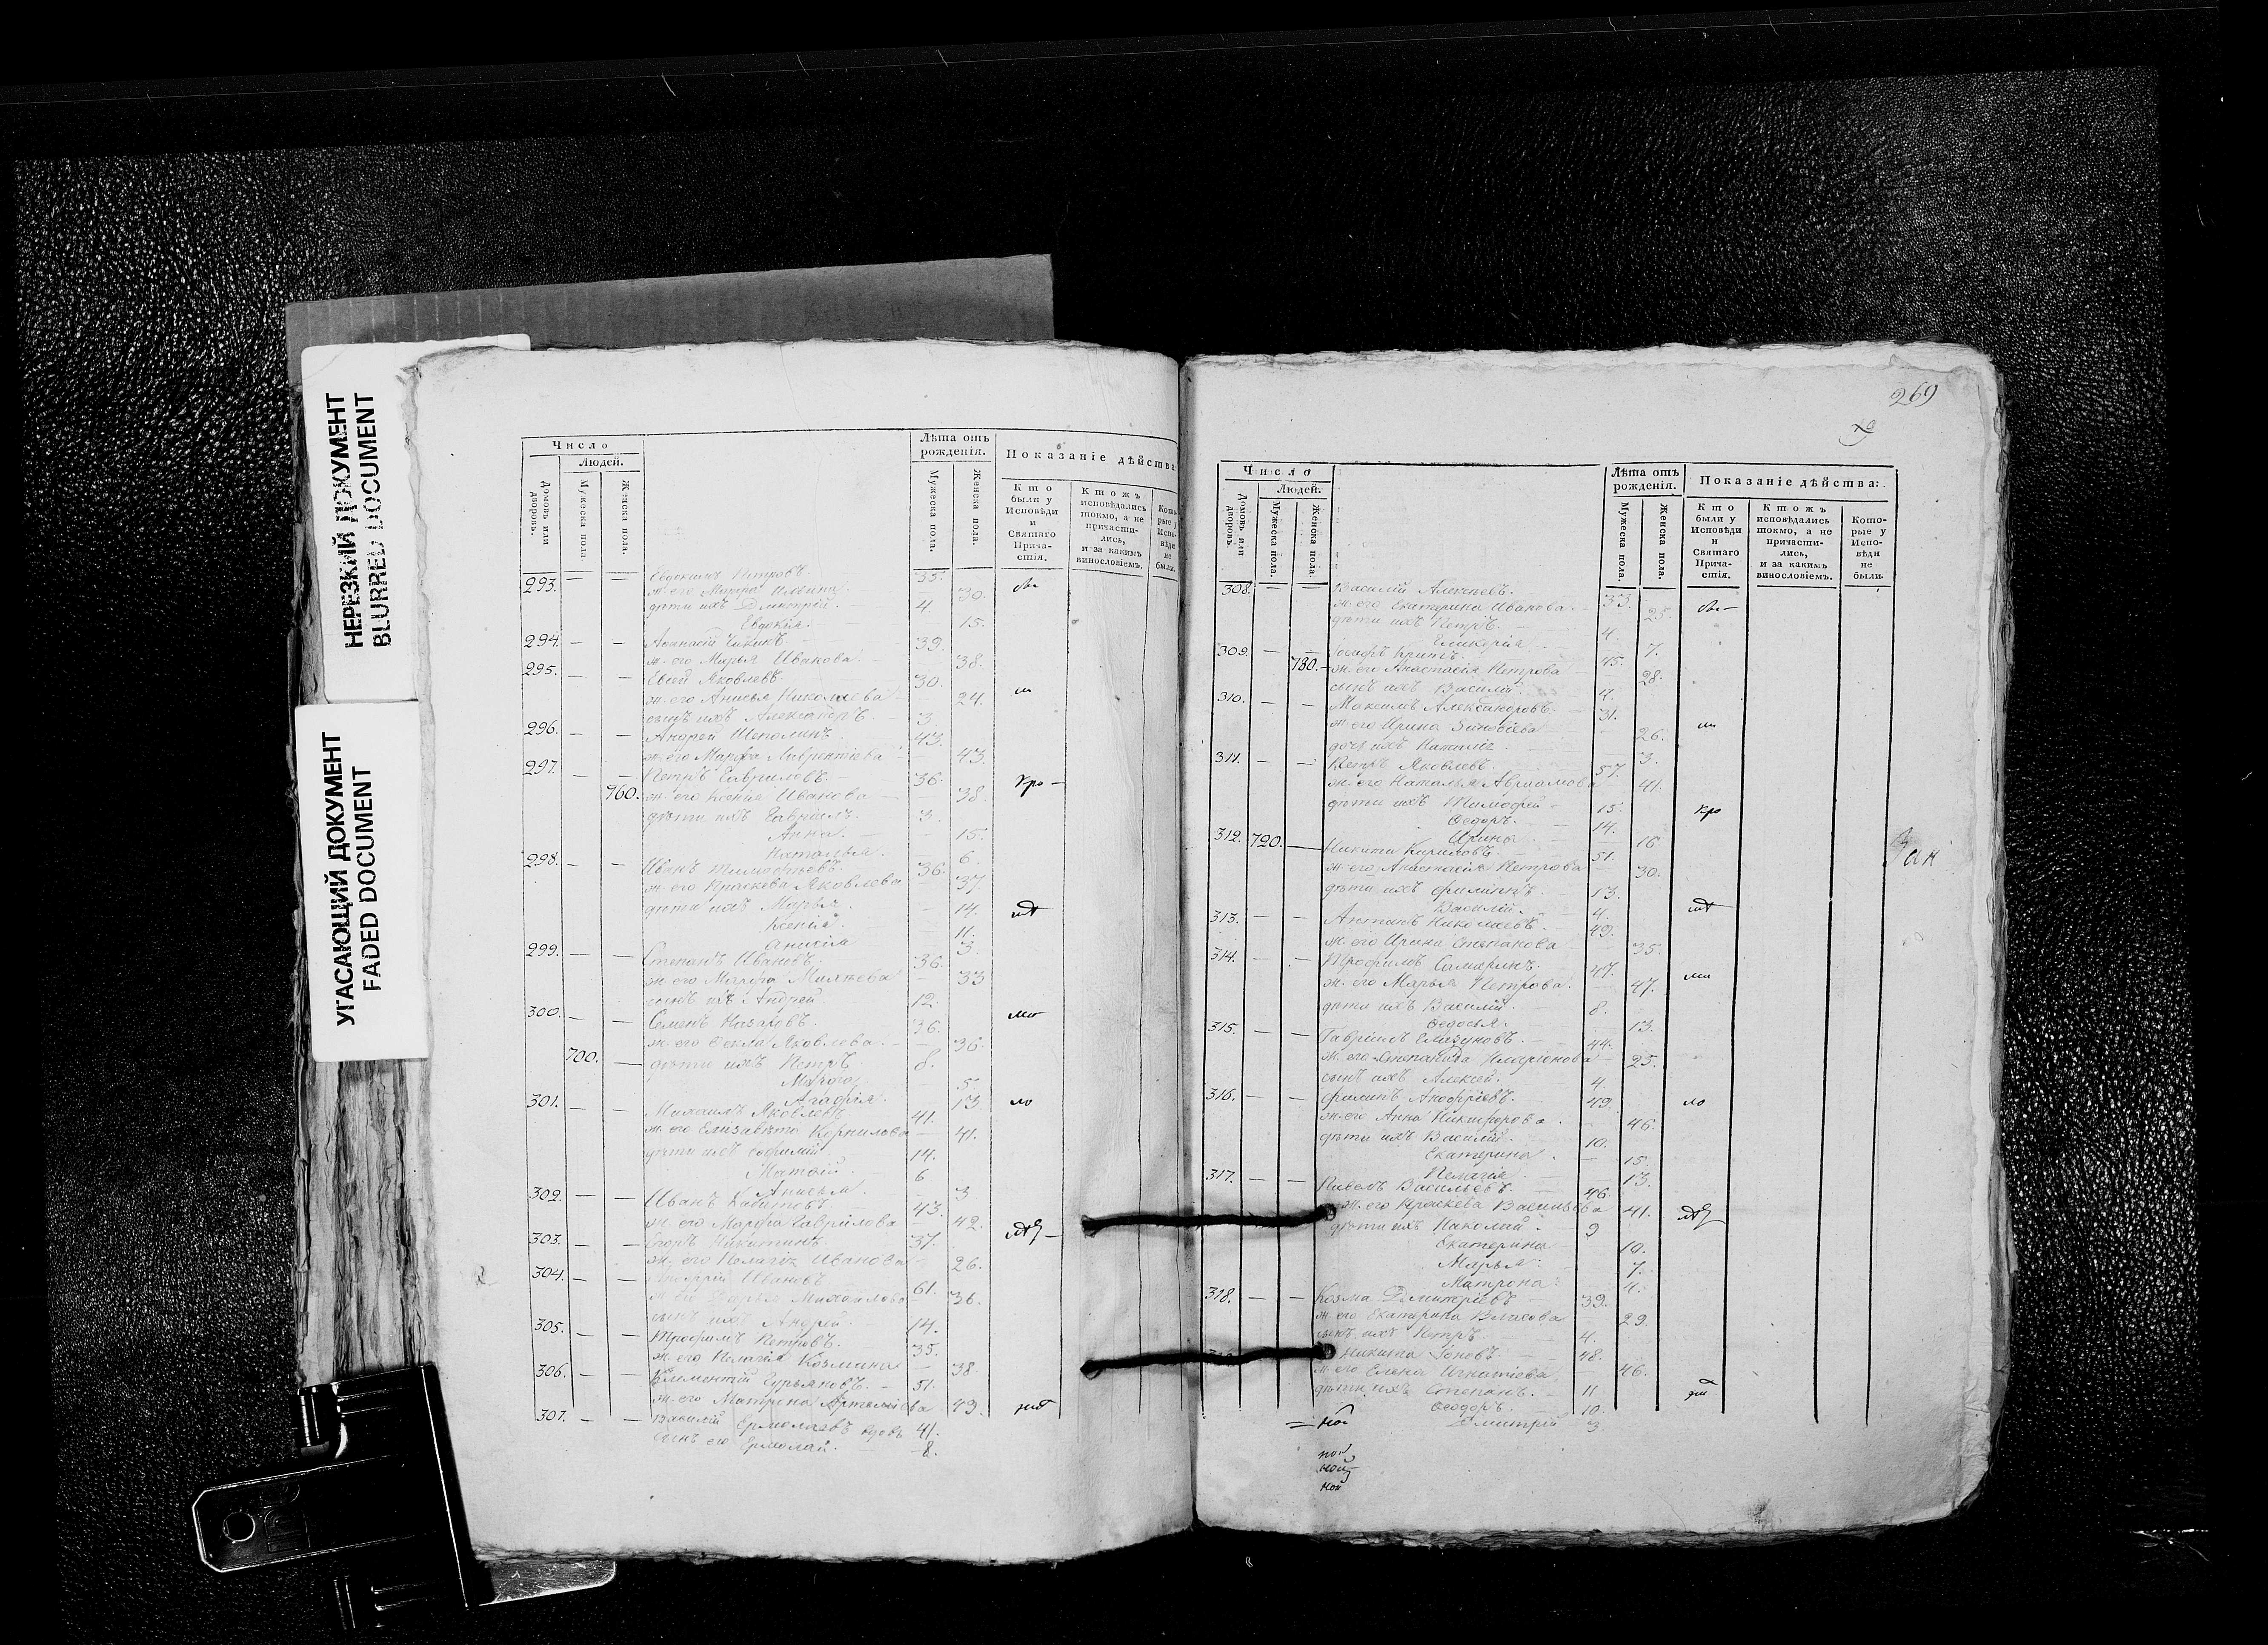 НЕРЕЗКИЙ ДОКУМЕНТ
BLURRED DOCUMENT
УГАСАЮЩИЙ ДОКУМЕНТ
FADED DOCUMENT
Число
Людей.
Домовъ или дворовъ.
Мужеска пола.
Женска пола.
Лѣта отъ рожденія.
Мужеска пола.
Женска пола.
Показаніе дѣйства:
Кто были у Исповѣди и Святаго Прича-стія.
Ктожъ исповѣдались токмо, а не причасти-лись, и за какимъ винословіемъ.
Кото-рые у Испо-вѣди не были.
293. — — Евдокимъ Петровъ. 35.
ж. его Марѳа 30.
дѣти ихъ Дмитрій. 4.
Евдокія. 15.
294. — — 39.
ж. его Марья Иванова. 38.
295. — — Евсей Яковлевъ 30.
ж. его Анисья Николаева 24.
сынъ ихъ Александръ. 3
296. — — Андрей 43.
ж. его Марѳа Лаврентіева 43.
297. — — Петръ Гавриловъ. 36.
760. ж. его Ксенія Иванова 38. Кро —
дѣти ихъ Гавріилъ. 3.
Анна. 15.
Наталья. 6.
298. — — Иванъ Тимоѳѣевъ. 36.
ж. его Праскева Яковлева 37
дѣти ихъ Марья. 14.
Ксенія. 11.
Анисія 3
299. — — Степанъ Ивановъ. 36.
ж. его Марѳа 33
сынъ ихъ Андрей. 12.
300. — — Семенъ Назаровъ. 36.
ж. его Ѳекла Яковлева. 36.
700. — дѣти ихъ Петръ 8.
5.
Агафія. 13
301. — — Яковлевъ 41.
ж. его Елизавета Корнилова 41.
дѣти ихъ 14.
6
Анисья. 3
302. — — Иванъ 43.
ж. его Марѳа Гаврилова 42.
303. — — Егоръ Никитинъ. 37.
ж. его Пелагія Иванова 26.
304. — — Ивановъ 61.
Михайлова 36.
сынъ ихъ Андрей. 14.
305. — — Трофимъ Петровъ. 35.
ж. его Пелагія Козмина 38.
306. — — Климентій Гурьяновъ. 51.
ж. его Матрена 49.
307. — — Василій Ермолаевъ вдовъ 41.
сынъ его Ермолай. 8.
269
Число
Людей.
Домовъ или дворовъ.
Мужеска пола.
Женска пола.
Лѣта отъ рожденія.
Мужеска пола.
Женска пола.
Показаніе дѣйства:
Кто были у Исповѣди и Святаго Прича-стія.
Ктожъ исповѣдались токмо, а не причасти-лись, и за какимъ винословіемъ.
Кото-рые у Испо-вѣди не были.
308. — — Василій Алексѣевъ. 33.
ж. его Екатерина Иванова. 25.
дѣти ихъ Петръ. 4.
Гликерія 7.
309. — — Іосифъ 45.
780. ж. его Анастасія Петрова 28.
сынъ ихъ Василій. 4.
310. — — Максимъ Александровъ. 31.
ж. его Ирина Зиновіева 26.
дочь ихъ 3.
311. — — Петръ Яковлевъ. 57.
ж. его Наталья Авраамова 41.
дѣти ихъ Тимоѳей 15. Кро
Ѳедоръ. 14.
Ирина 16
312. 720. — Никита Кириловъ. 51.
ж. его Анастасія Петрова 30.
дѣти ихъ Филиппъ. 13.
Василій. 4.
313. — — Антонъ Николаевъ. 49.
ж. его Ирина Степанова 35.
314. — — Трофимъ Самаринъ. 47.
ж. его Марья Петрова. 47.
дѣти ихъ Василій. 8.
Ѳедосья. 13.
315. — — Гаврилъ 44.
ж. его Степанида Иларіонова 25.
сынъ ихъ Алексѣй. 4.
316. — — Филипъ 49.
ж. его Анна Никифорова. 46.
дѣти ихъ Василій. 10.
Екатерина. 15.
Пелагія. 13.
317. — — Павелъ Васильевъ. 46
ж. его Праскева Васильева 41.
дѣти ихъ Николай. 9
Екатерина 10.
Марья. 7.
Матрона. 4.
318. — — Козма Дмитріевъ 39.
ж. его Екатерина Власова 29.
сынъ ихъ Петръ. 4.
Никита Іоновъ. 48.
ж. его Елена Игнатіева 46.
дѣти ихъ Степанъ. 11
Ѳеодоръ. 10.
Дмитрій 3
ной
ной
ной
ной